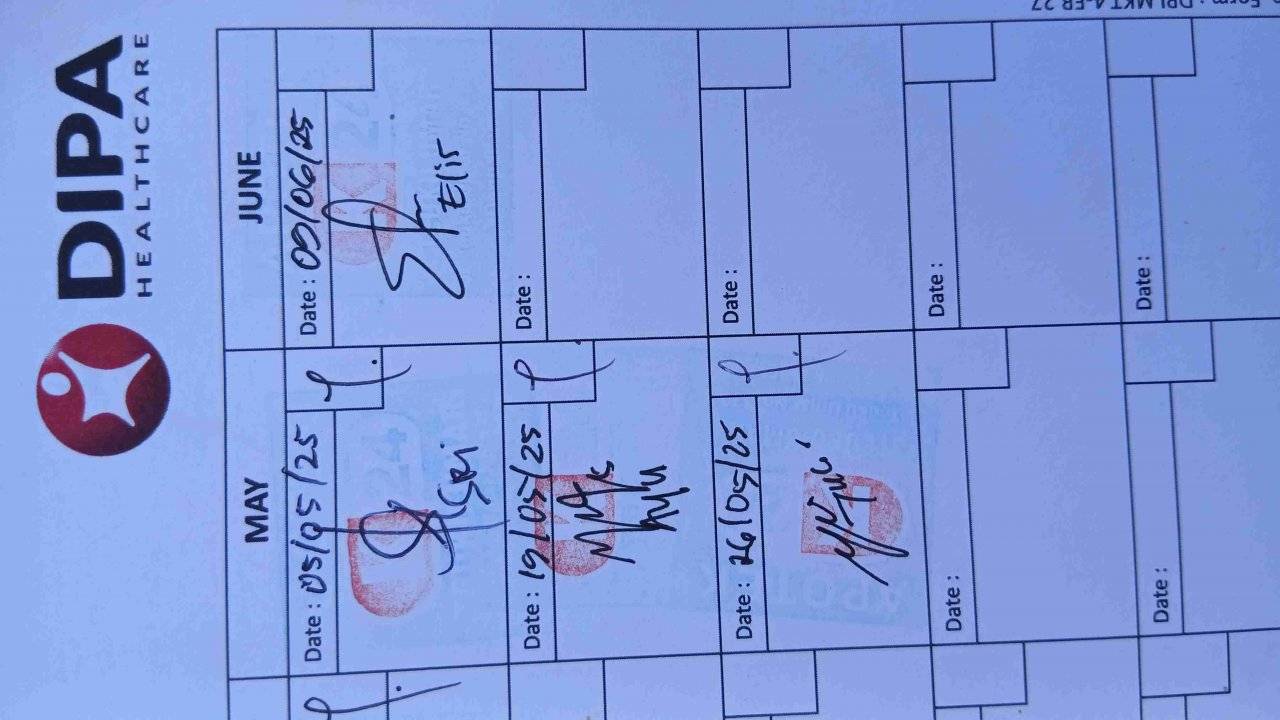 DIPA
HEALTHCARE
MAY
JUNE
Date : 05/05/25
Date : 09/06/25
Sri
Elis
Date : 19/05/25
Date :
Date : 26/05/25
Date :
Date :
Date :
Date :
Date :